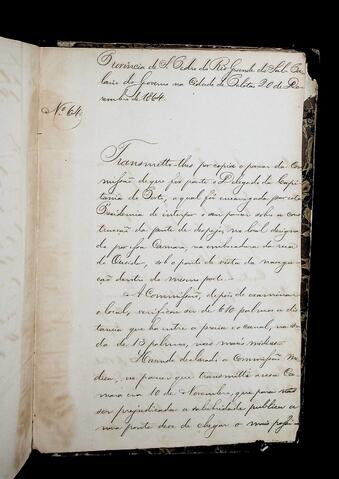 Provincia de S. Pedro do Rio Grande do Sul. Pa-
lacio do Governo na Cidade de Pelotas 20 de De-
zembro de 1864.
Nº 64.
Transmitto-lhes por copia o parecer da Com-
missão de que fez parte o Delegado da Capi-
tania do Porto, a qual foi encarregada por esta
Presidencia de interpor o seu parecer sobre a cons-
trucção da ponte de despejo, no local designa-
do por essa Camara, na embocadura da rua
do Ouvidor, sob o ponto de vista da navega-
ção dentro do mesmo porto.
A Commissão, depois de examinar
o local, verificou ser de 610 palmos a dis-
tancia que ha entre a praia e o canal, fun-
do de 13 palmos, mais miudas.
Havendo declarado a Commissão Me-
dica, no parecer que transmitti a essa Ca-
mara em 10 de Novembro, que para não
ser prejudicada a salubridade publica a
nova ponte deve de chegar o mais possi-